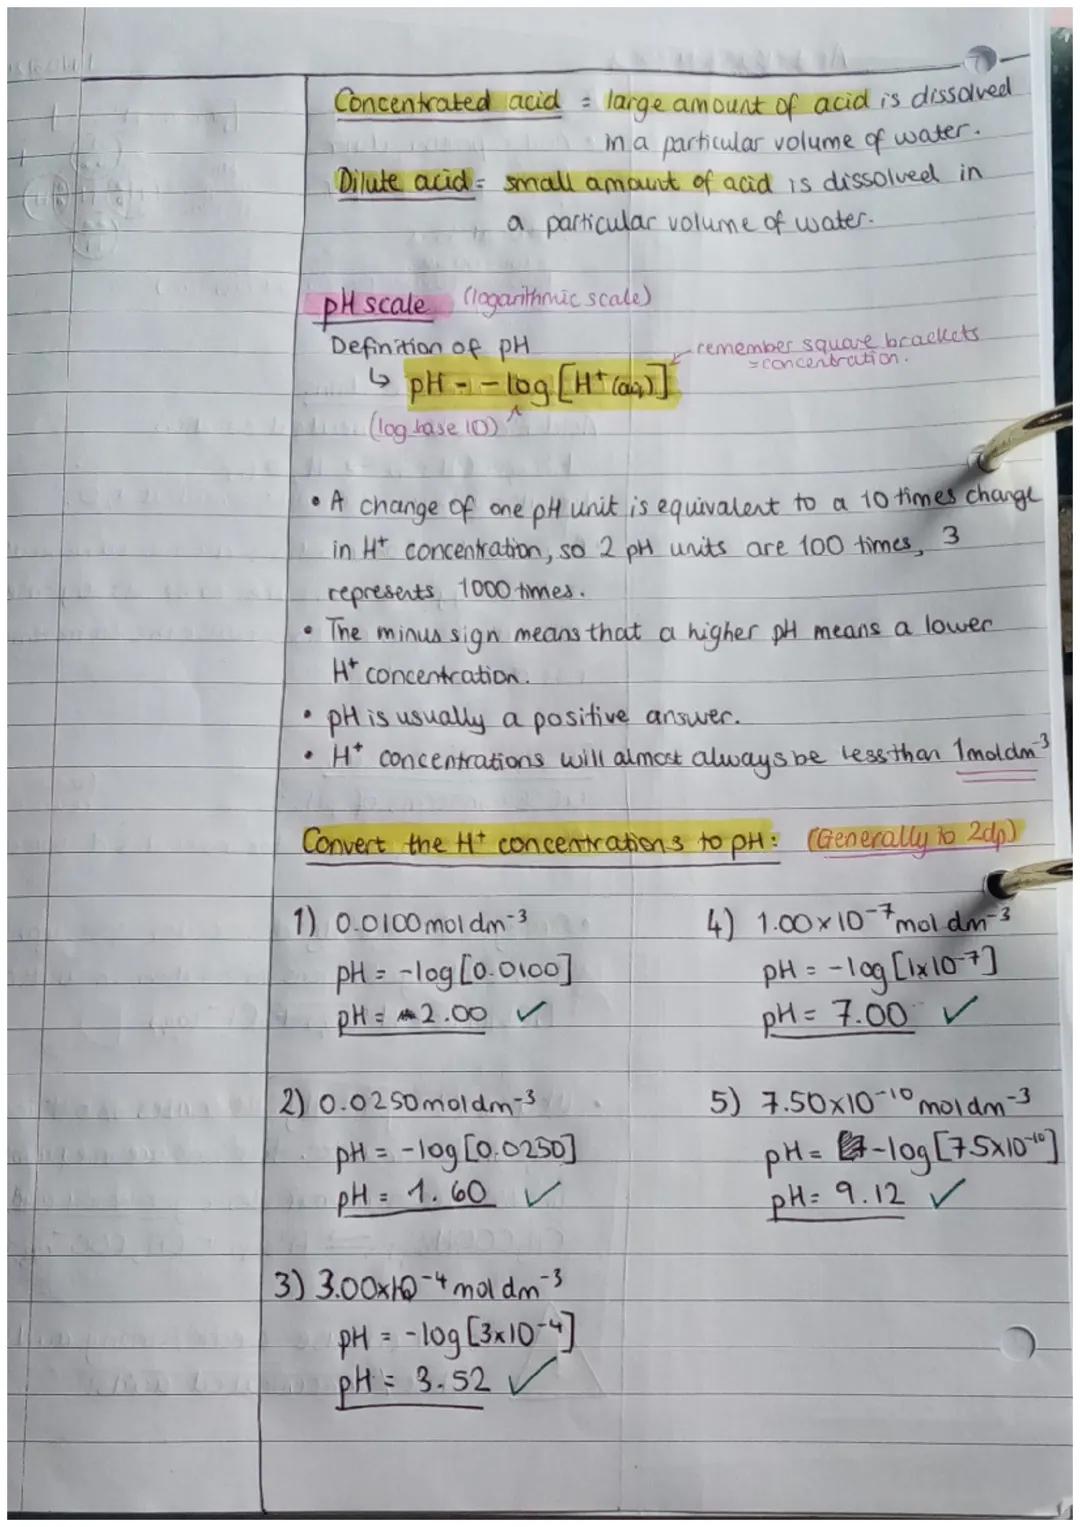 Concentrated acid = large amount of acid is dissolved
in a particular volume of water.
Dilute acid = small amount of acid is dissolved in
a particular volume of water.
pH scale (logarithmic scale)
Definition of pH
remember square brackets
= concentration.
↳ pH = - log [H⁺(aq)]
(log base 10)
• A change of one pH unit is equivalent to a 10 times change
in H⁺ concentration, so 2 pH units are 100 times, 3
represents 1000 times.
• The minus sign means that a higher pH means a lower
H⁺ concentration.
• pH is usually a positive answer.
• H⁺ concentrations will almost always be less than 1moldm⁻³
Convert the H⁺ concentrations to pH: (Generally to 2dp)
1) 0.0100 mol dm⁻³
pH = -log [0.0100]
pH = 2.00 ✓
2) 0.0250 moldm⁻³
pH = -log [0.0250]
pH = 1.60 ✓
3) 3.00x10⁻⁴ mol dm⁻³
pH = -log [3x10⁻⁴]
pH = 3.52 ✓
4) 1.00 x 10⁻⁷ mol dm⁻³
pH = -log [1x10⁻⁷]
pH = 7.00 ✓
5) 7.50x10⁻¹⁰ mol dm⁻³
pH = -log [7.5x10⁻¹⁰]
pH = 9.12 ✓